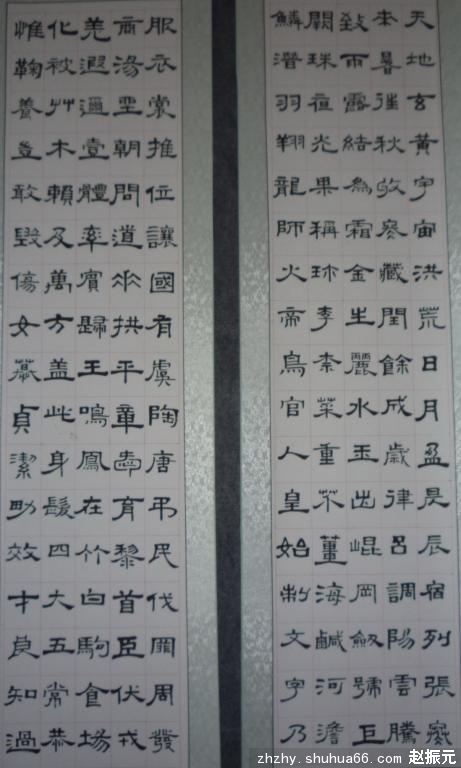 天地玄黃宇宙洪荒日月盈昃辰宿列張寒
来暑往秋收冬藏閏餘成歲律呂調陽雲騰
致雨露結為霜金生麗水玉出崐岡劒號巨
闕珠夜光果稱珎李柰菜重芥薑海鹹河澹
鱗潛羽翔龍師火帝鳥官人皇始制文字乃
服衣裳推位讓國有虞陶唐弔民伐罪周發
商湯坐朝問道垂拱平章愛育黎首臣伏戎
羌遐邇壹體率賓歸王鳴鳳在竹白駒食場
化被艸木賴及萬方盖此身髮四大五常恭
惟鞠養豈敢毀傷女慕貞潔男效才良知過
zhzhy.shuhua66.com 赵振元